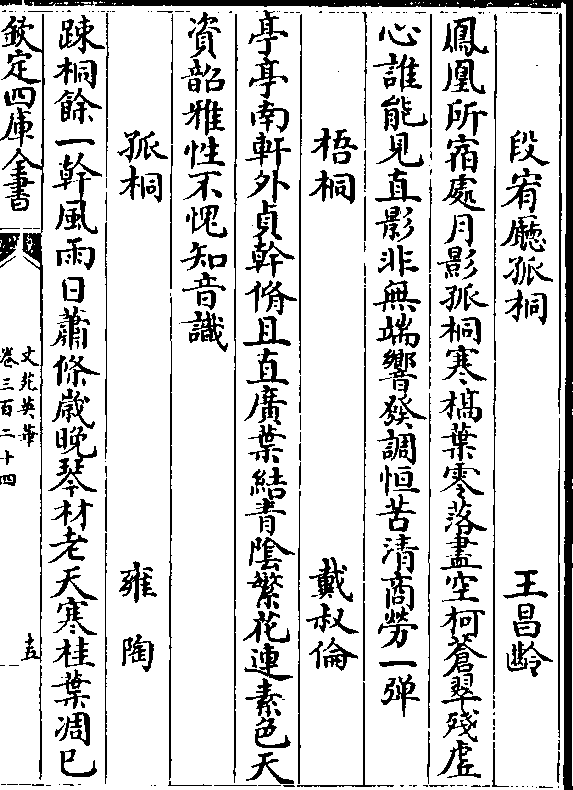 段宥廳孤桐　王昌齡
鳳凰所宿處月影孤桐寒槁葉零落盡空柯蒼翠殘虛
心誰能見直影非無端響發調恒苦清商勞一弹
梧桐　戴叔倫
亭亭南軒外貞幹脩且直廣葉結青陰繁花連素色天
資韶雅性不愧知音識
孤桐　雍陶
踈桐餘一幹風雨日蕭條歲晚琴材老天寒桂葉凋已
欽定四庫全書
文苑英華
卷三百二十四
十五